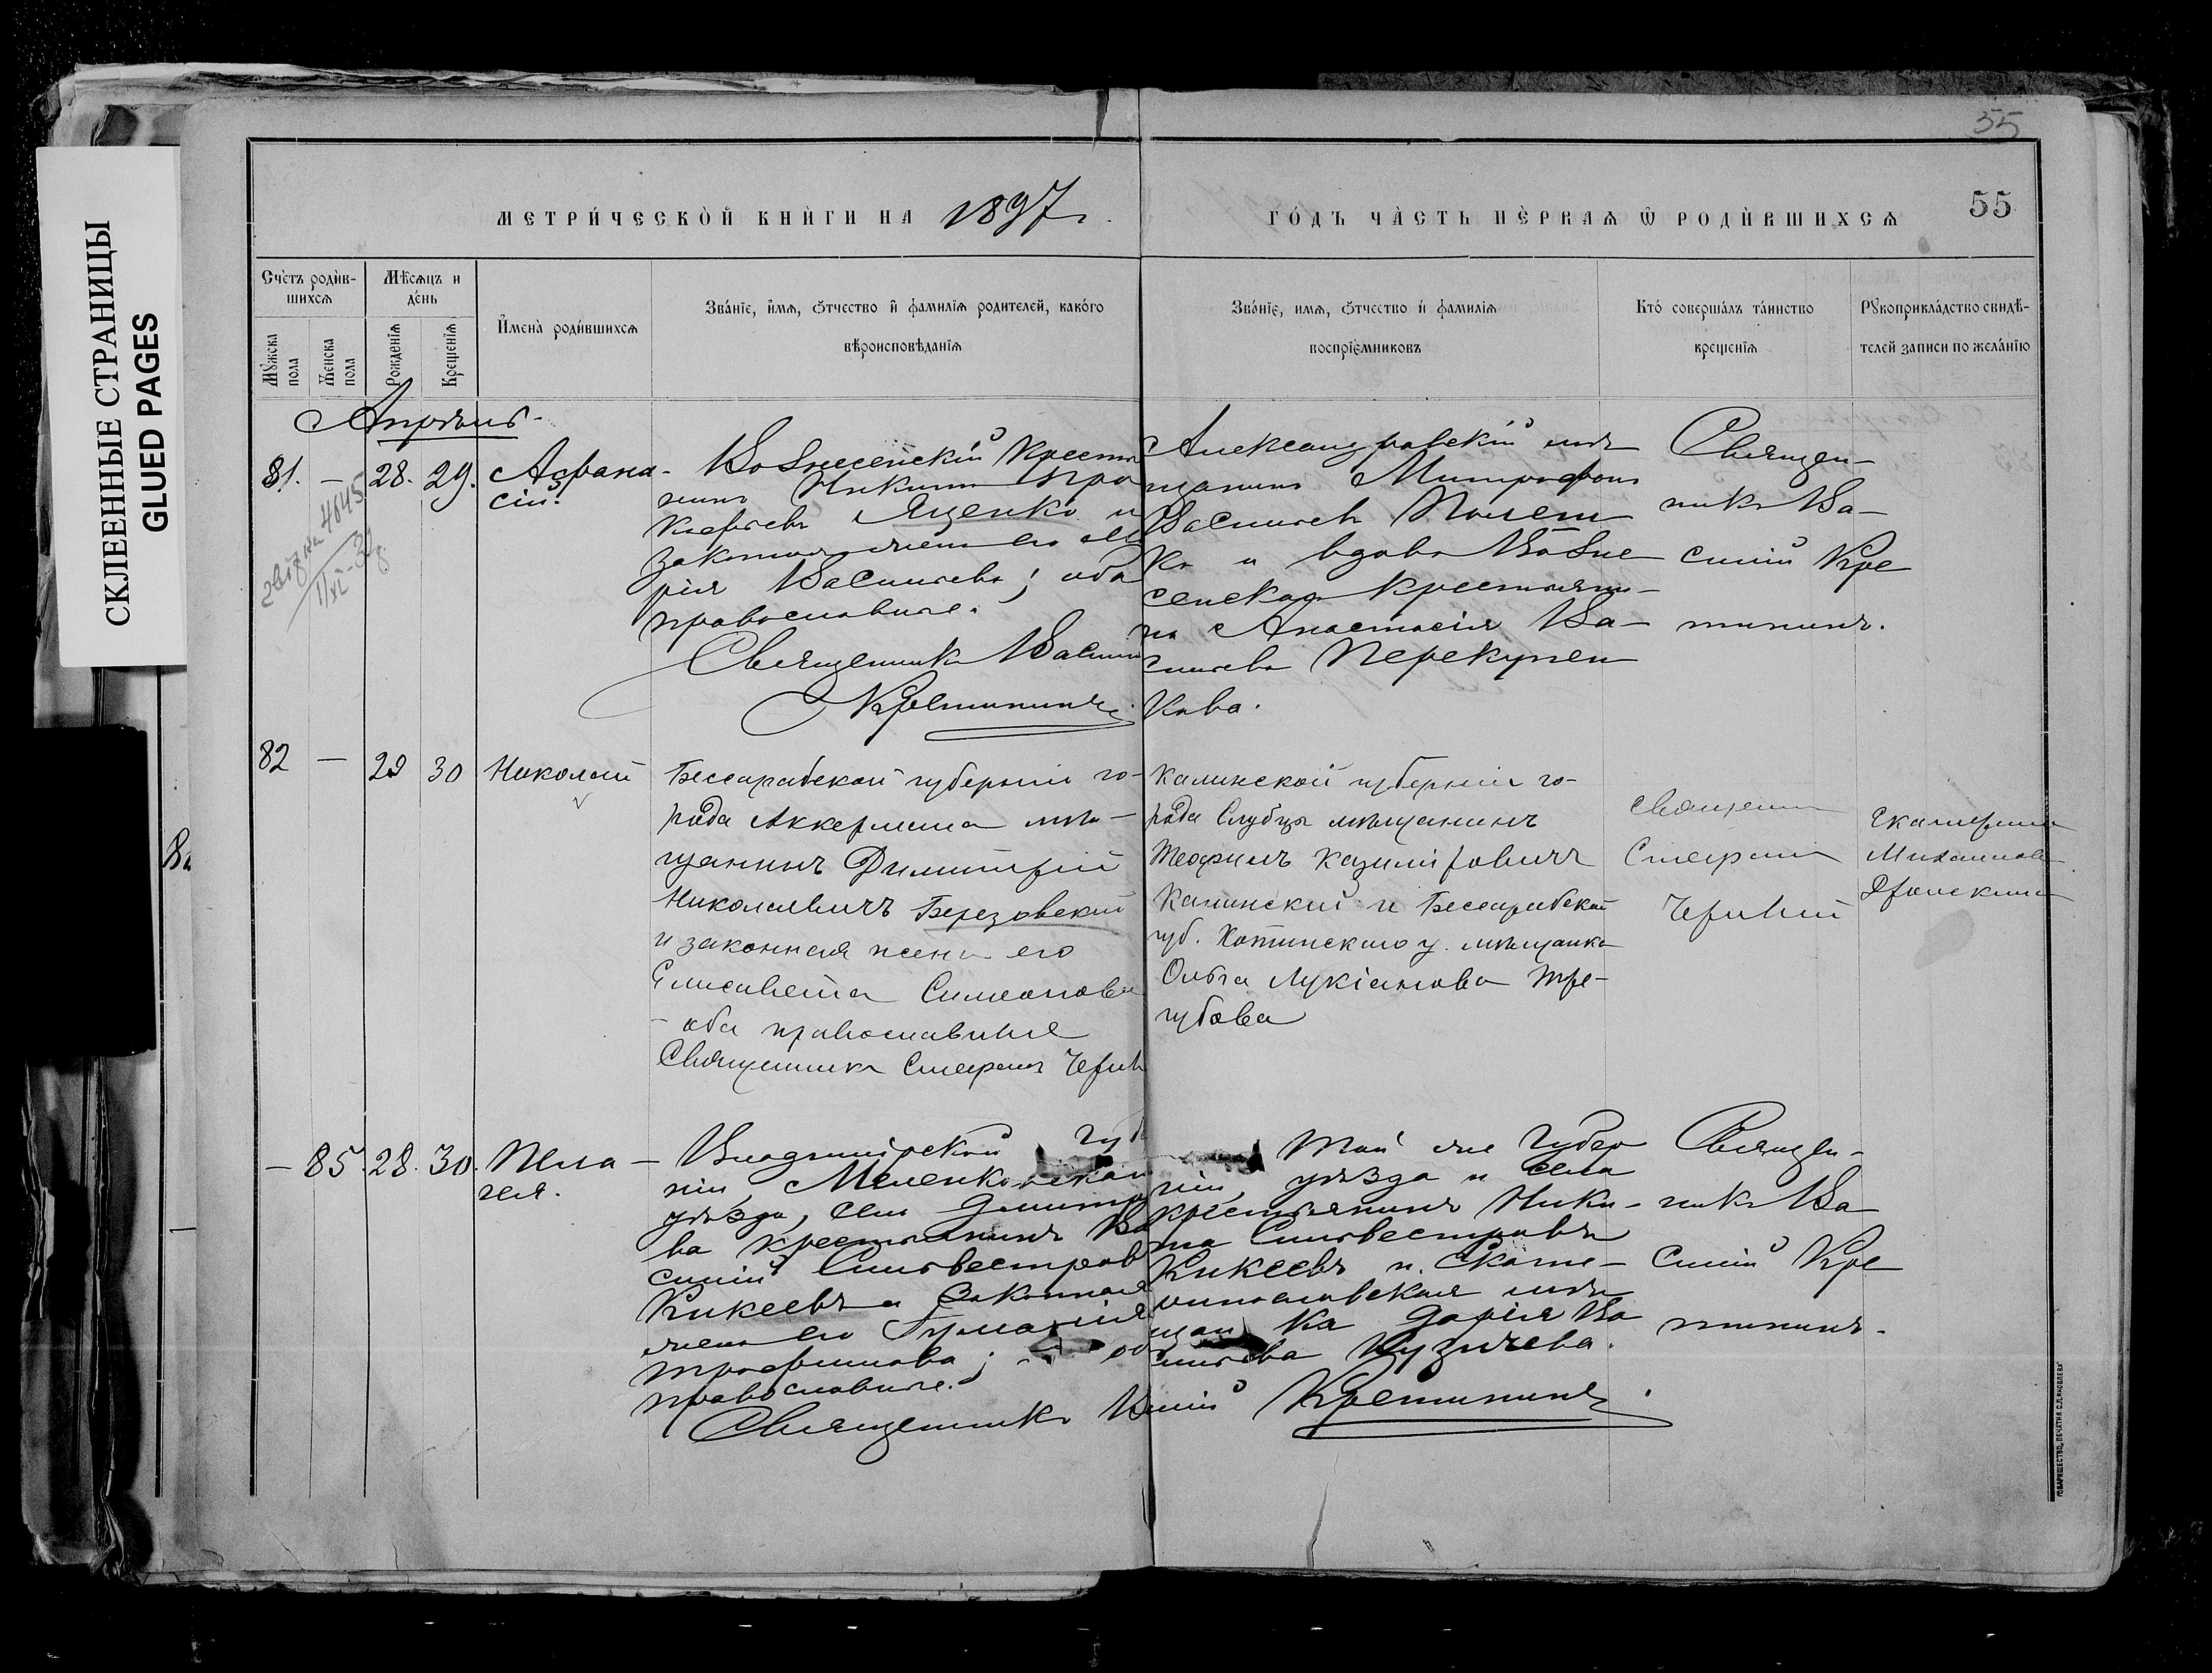 СКЛЕЕННЫЕ СТРАНИЦЫ
GLUED PAGES
35
55
МЕТРИ́ЧЕСКОЙ КНИ́ГИ НА 1897 г.
ГО́ДЪ ЧА́СТЬ ПЕ́РВАѦ Ѡ РОДИ́ВШИХСѦ
Сче́тъ роди́в-
шихсѧ
Мѣ́сѧцъ и
де́нь
Мꙋжска
пола
Женска
пола
Рожденїѧ
Крещенїѧ
И҆мена̀ роди́вшихсѧ
Зва́нїе, и҆мѧ, ѻ҆тчество и҆ фамилїѧ родителей, како́го
вѣроисповѣданїѧ
Зва́нїе, имѧ, ѻ҆тчество и҆ фамилїѧ
воспрїемниковъ
Кто́ соверша́лъ та́инство
крещенїѧ
Рꙋкоприкла́дство свидѣ́-
телей записи по жела́нїю
Апрѣль
81. — 28. 29. Афана-
сій.
Вознесенскій Крестья
нинъ Никита Про
кофьевъ Яценко и
законная жена его Ма
рія Васильева; оба
православные.
Священникъ Васили
Кретининъ
Александровскій мѣ
щанинъ Митрофанъ
Васильевъ
и вдова Возне
сенская крестьян-
ка Анастасія Ва-
сильева Перекупен
кова.
Священ-
никъ Ва-
силій Кре
тининъ.
82 — 29 30 Николай
Бессарабской губерніи го-
рода Аккермана мѣ-
щанинъ Димитрій
Николаевичъ Березовскій
и законная жена его
Елисавета Симеонова
- оба православные
Священникъ Стефанъ
Калишской губерніи го-
рода Слубцы мѣщанинъ
Теофилъ Казиміровичъ
Калинскій и Бессарабской
губ. Хотинскаго у. мѣщанка
Ольга Лукіанова Тре-
губова
Священникъ
Стефанъ
Екатерина
Михаилова
— 85. 28. 30. Пела-
гея.
Владимірской губ
ніи, Меленковскаго
уѣзда, села Дмитр
ва крестьянинъ Ва
силій Сильвестровъ
Кикеевъ и законная
жена его
Трофимова; об
православные.
Священникъ Василій Кретининъ
Той же Губер
ніи, уѣзда и села
крестьянинъ Ники-
та Сильвестровъ
Кикеевъ и Екате-
ринославская мѣ
щанка Дарія Ва
сильева Кузичева.
Священ-
никъ Ва-
силій Кре
тининъ.